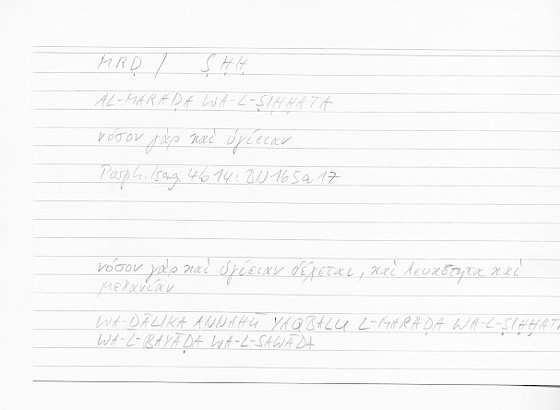 MRḌ / ṢḤḤ
AL-MARAḌA WA-L-ṢIḤḤATA
νόσον γὰρ καὶ ὑγίειαν
Porph. Isag. 4b14: BN 165a17
νόσον γὰρ καὶ ὑγίειαν δέχεται, καὶ λευκότητα καὶ
μελανίαν
WA-ḎĀLIKA ANNAHŪ YAQBALU L-MARAḌA WA-L-ṢIḤḤATA
WA-L-BAYĀḌA WA-L-SAWĀDA